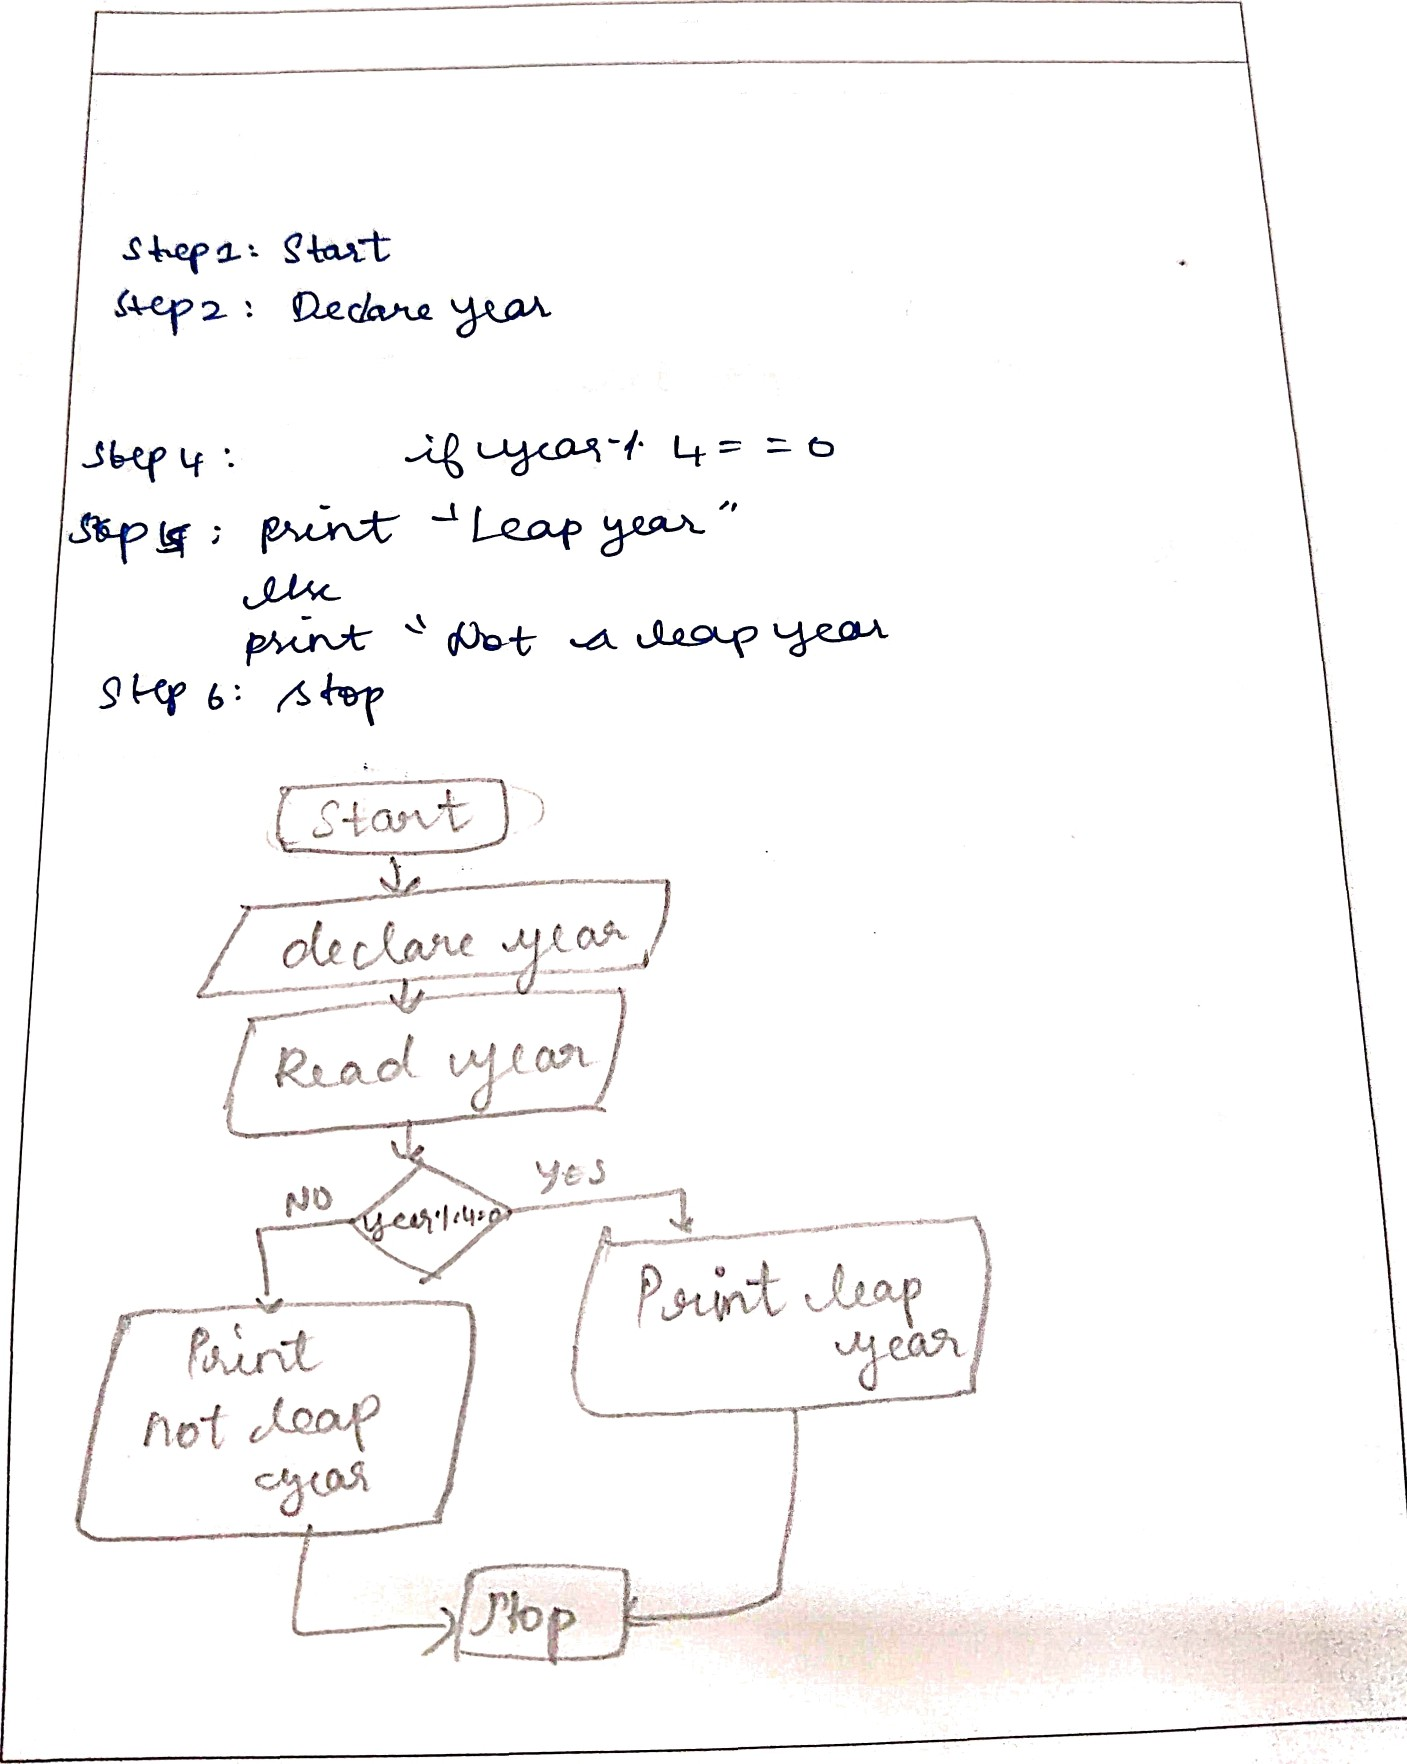 Step 1: Start
Step 2: Declare year
Step 4: if year % 4 = = 0
Step 5: print "Leap year"
else
print " Not a leap year
Step 6: Stop
Start
declare year
Read year
NO
YES
year%4=0
Print leap
year
Print
not leap
year
Stop